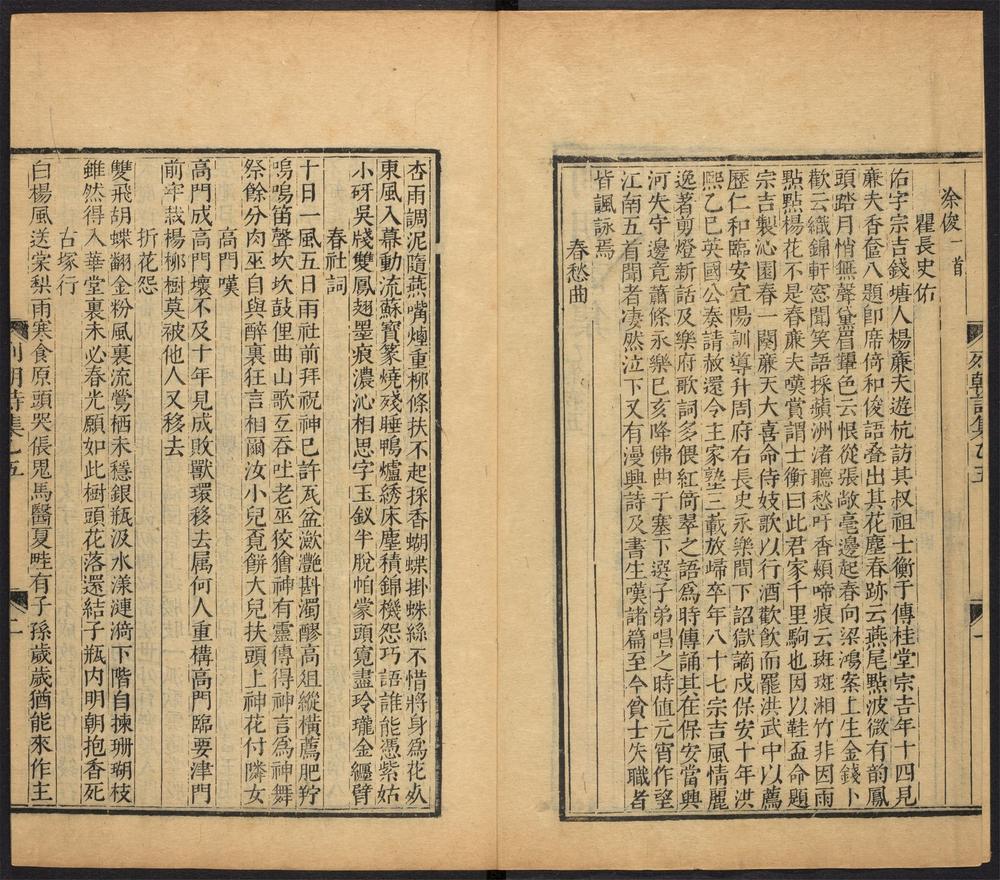 徐俊一首
瞿長史佑
佑字宗吉錢塘人楊廉夫遊杭訪其叔祖士衡于傳桂堂宗吉年十四見
廉夫香奩八題卽席倚和俊語叠出其花塵春跡云燕尾㸃波微有韵鳳
頭踏月悄無聲黛眉顰色云恨從張敞毫邊起春向梁鴻案上生金錢卜
歡云織錦軒窓聞笑語採蘋洲渚聽愁吁香頰啼痕云斑斑湘竹非因雨
㸃㸃楊花不是春廉夫嘆賞謂士衡曰此君家千里駒也因以鞋盃命題
宗吉製沁園春一闋廉夫大喜命侍妓歌以行酒歡飲而罷洪武中以薦
歷仁和臨安宜陽訓導升周府右長史永樂間下詔獄謫戍保安十年洪
熙乙巳英國公奏請赦還令主家塾三載放歸卒年八十七宗吉風情麗
逸著剪燈新話及樂府歌詞多偎紅倚翠之語爲時傳誦其在保安當興
河失守邊竟蕭條永樂己亥降佛曲于塞下選子弟唱之時值元宵作望
江南五首聞者凄然泣下又有漫興詩及書生嘆諸篇至今貧士失職者
皆諷詠焉
春愁曲
杏雨調泥隨燕嘴煙重柳條扶不起採香蝴蝶掛蛛絲不惜將身爲花死
東風入幕動流蘇寶篆燒殘睡鴨爐綉床塵積錦機怨巧語誰能憑紫姑
小砑吳牋雙鳳翅墨痕濃沁相思字玉釵半脫帕蒙頭寬盡玲瓏金纏臂
春社詞
十日一風五日雨社前拜祝神已許瓦盆瀲灩斟濁醪高俎縱橫薦肥羜
嗚嗚笛聲坎坎鼓俚曲山歌互吞吐老巫狡獪神有靈傳得神言爲神舞
祭餘分肉巫自與醉裏狂言相爾汝小兒覔餅大兒扶頭上神花付隣女
高門嘆
高門成高門壞不及十年見成敗獸環移去属何人重構高門臨要津門
前牢栽楊柳樹莫被他人又移去
折花怨
雙飛胡蝶翻金粉風裏流鶯栖未穩銀瓶汲水漾漣漪下階自揀珊瑚枝
雖然得入華堂裏未必春光願如此樹頭花落還結子瓶内明朝抱香死
古塚行
白楊風送棠梨雨寒食原頭哭張䰟馬醫夏畦有子孫歲歲猶能來作主